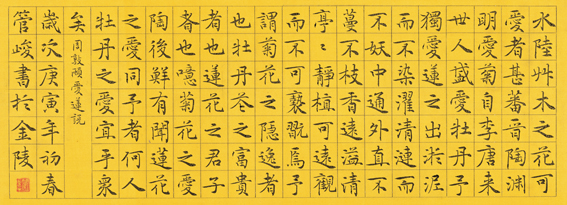 水陸艸木之花可
愛者甚蕃晉陶渊
明愛菊自李唐來
世人盛愛牡丹予
獨愛蓮之出淤泥
而不染濯清漣而
不妖中通外直不
蔓不枝香遠溢清
亭〻靜植可遠觀
而不可褻翫焉予
謂菊花之隱逸者
也牡丹花之富貴
者也蓮花之君子
者也噫菊花之愛
陶後鮮有聞蓮花
之愛同予者何人
牡丹之愛宜乎衆
矣 周敦頤愛蓮說
歲次庚寅年初春
管峻書於金陵